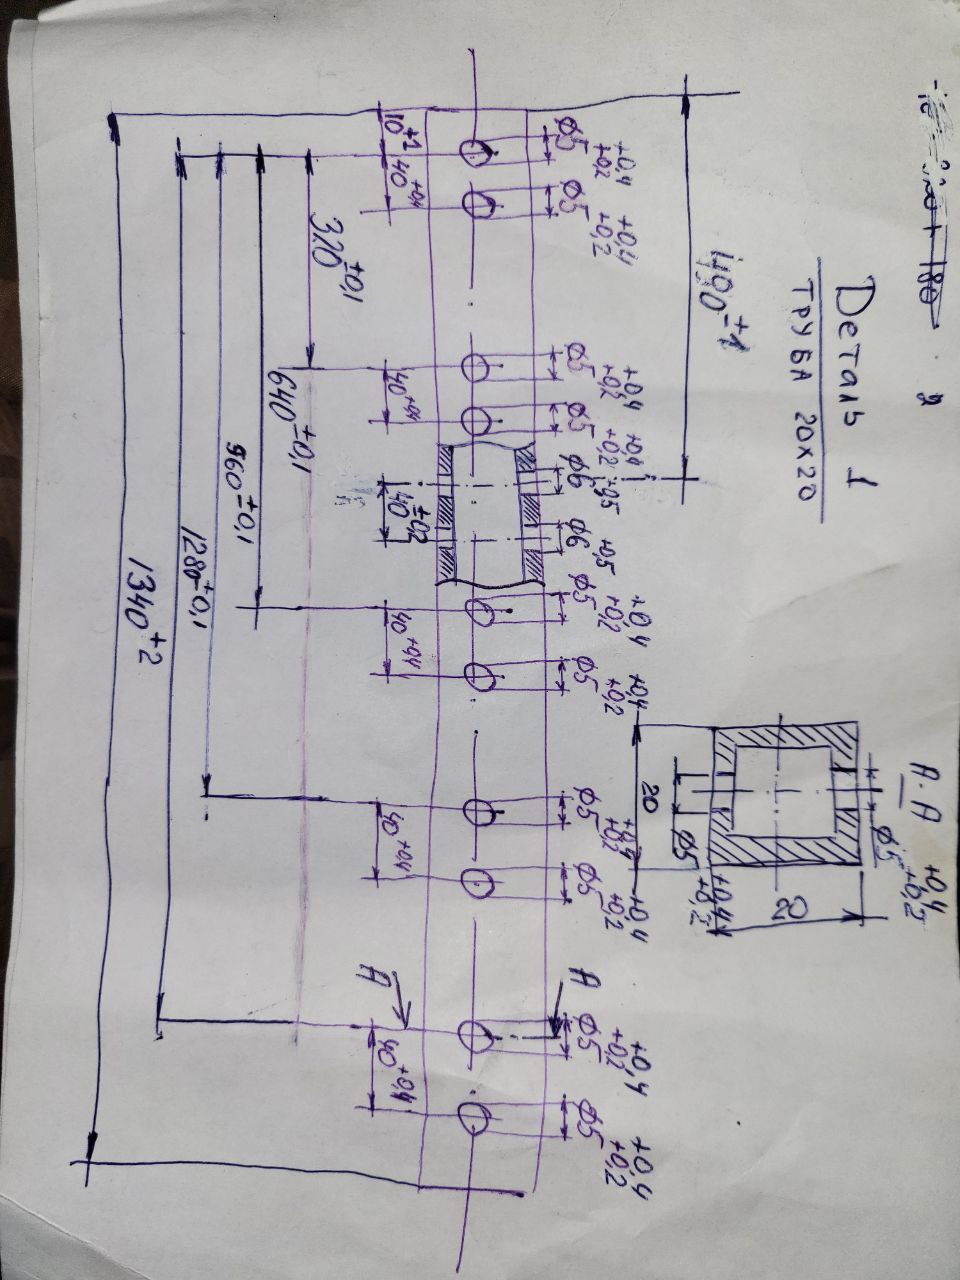 320+ 180
2
Деталь 1
ТРУБА 20х20
А-А
+0,4
+0,2
ø5
20
+0,4
+0,2
ø5
20
490±1
+0,4
+0,2
ø5
+0,4
+0,2
ø5
+0,4
+0,2
ø5
+0,4
+0,2
ø5
+0,5
ø6
+0,5
ø6
+0,4
+0,2
ø5
+0,4
+0,2
ø5
+0,4
+0,2
ø5
+0,4
+0,2
ø5
А
+0,4
+0,2
ø5
+0,4
+0,2
ø5
10±1
40+0,4
40+0,4
40±0,2
40+0,4
40+0,4
А
40+0,4
320±0,1
640±0,1
960±0,1
1280±0,1
1340+2